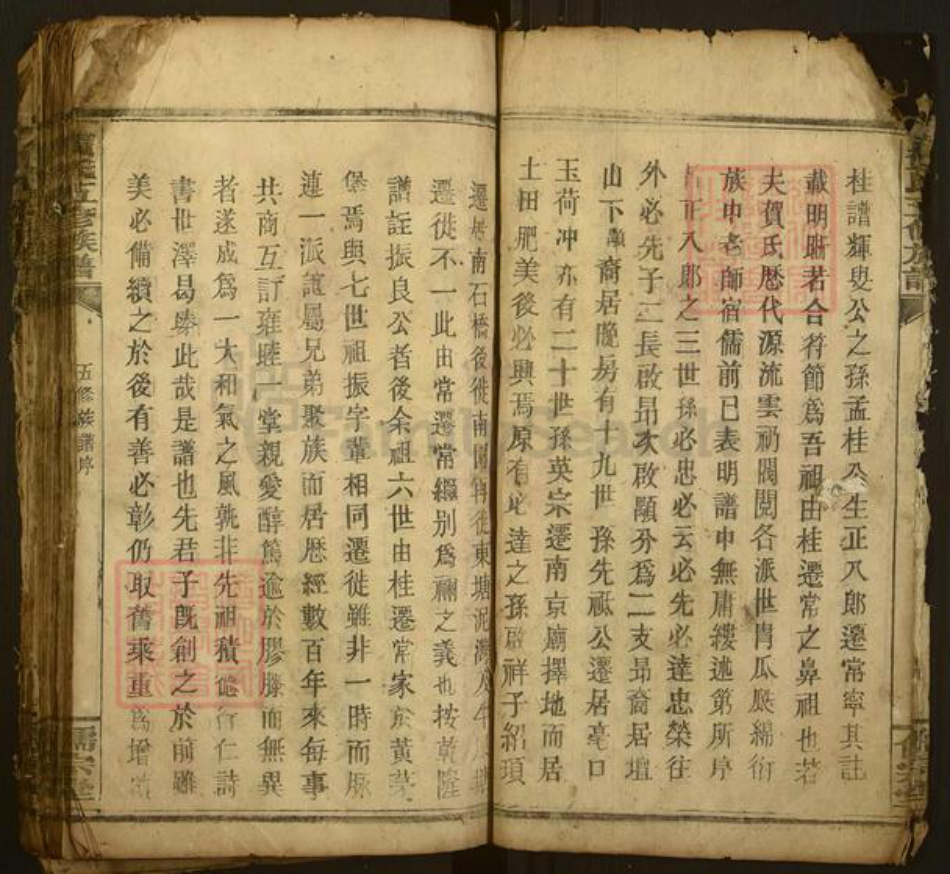 桂譜輝叟公之孫孟桂公生正八郎遷常寧其註
載明晰若合符節爲吾祖由桂遷常之鼻祖也若
夫賀氏歷代源流雲礽閥閱各派世胄瓜瓞綿衍
族中老師宿儒前已表明譜中無庸縷述第所序
正八郎之三世孫必忠必云必先必達忠榮往
外必先子二長啟昂次啟顒分爲二支昂裔居壇
山下顒裔居晚房有十九世孫先祗公遷居亳口
玉荷冲亦有二十世孫英宗遷南京廟擇地而居
土田肥美後必興焉原有必達之孫啟祥子紹瑣
遷居南石橋後徙南園轉徙東塘泥灣及牛
遷徙不一此由常遷常繼别爲禰之義也按乾隆
譜註振良公者後余祖六世由桂遷常家於黄茅
堡焉與七世祖振字輩相同遷徙雖非一時而脉
連一派誼屬兄弟聚族而居歷經數百年來每事
共商互訂雍睦一堂親愛醇篤逾於膠膝而無異
者遂成爲一大和氣之風孰非先祖積德行仁詩
書世澤曷臻此哉是譜也先君子旣創之於前雖
美必備續之於後有善必彰仍取舊乘重爲增
五修族譜
五修族譜序